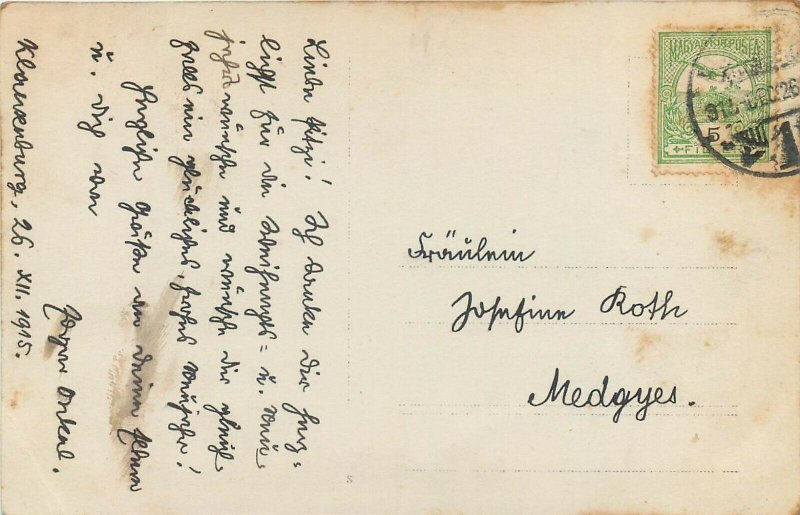 Liebe Pitzi! Ich danke Dir herz=
lichst für die Weihnachts= u. Neu=
jahrwünsche und wünsche Dir gleich
falls ein glückliches, frohes Neujahr!
Herzliche Grüße an Deine Eltern
u. Dich von
Onkel.
Klausenburg, 26. XII. 1915.
MAGYAR KIR. POSTA
5
Fräulein
Josefine Roth
Medgyes.
S